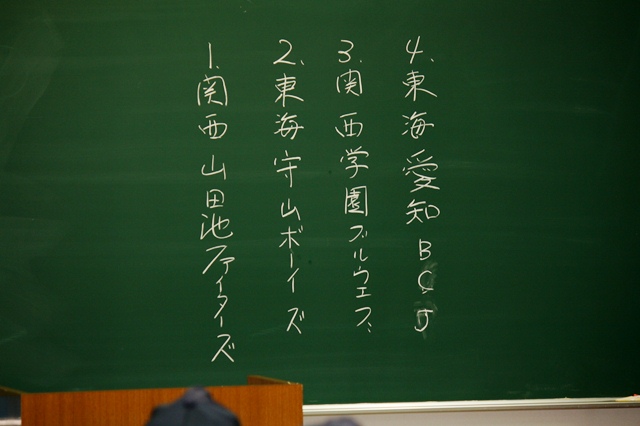 1.関西山田池ファイターズ
2.東海守山ボーイズ
3.関西学園ブルウエブ
4.東海愛知BCJ